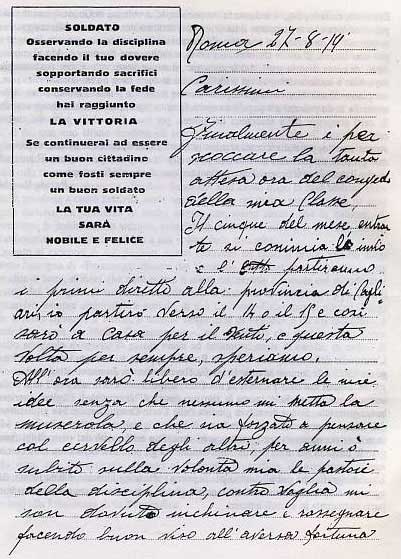 SOLDATO
Osservando la disciplina
facendo il tuo dovere
sopportando sacrifici
conservando la fede
hai raggiunto
LA VITTORIA
Se continuerai ad essere
un buon cittadino
come fosti sempre
un buon soldato
LA TUA VITA
SARÀ
NOBILE E FELICE
Roma 27-8-19
Carissimi
Finalmente è per
scoccare la tanta
attesa ora del congedo
della mia Classe,
Il cinque del mese entran
te si comincia l'invio
e l' partiranno
i primi diretto alla provincia di Cagli
ari, io partirò verso il 14 o il 15 e così
sarò a casa per il Venti, e questa
volta per sempre, speriamo.
All'ora sarò libero d'esternare le mie
idee senza che nessuno mi metta la
muserola, e che sia forzato a pensare
col cervello degli altri, per anni ò
subito sulla volontà mia le pastoie
della disciplina, contro voglia mi
son dovuto inchinare e rassegnare
facendo buon viso all'aversa fortuna